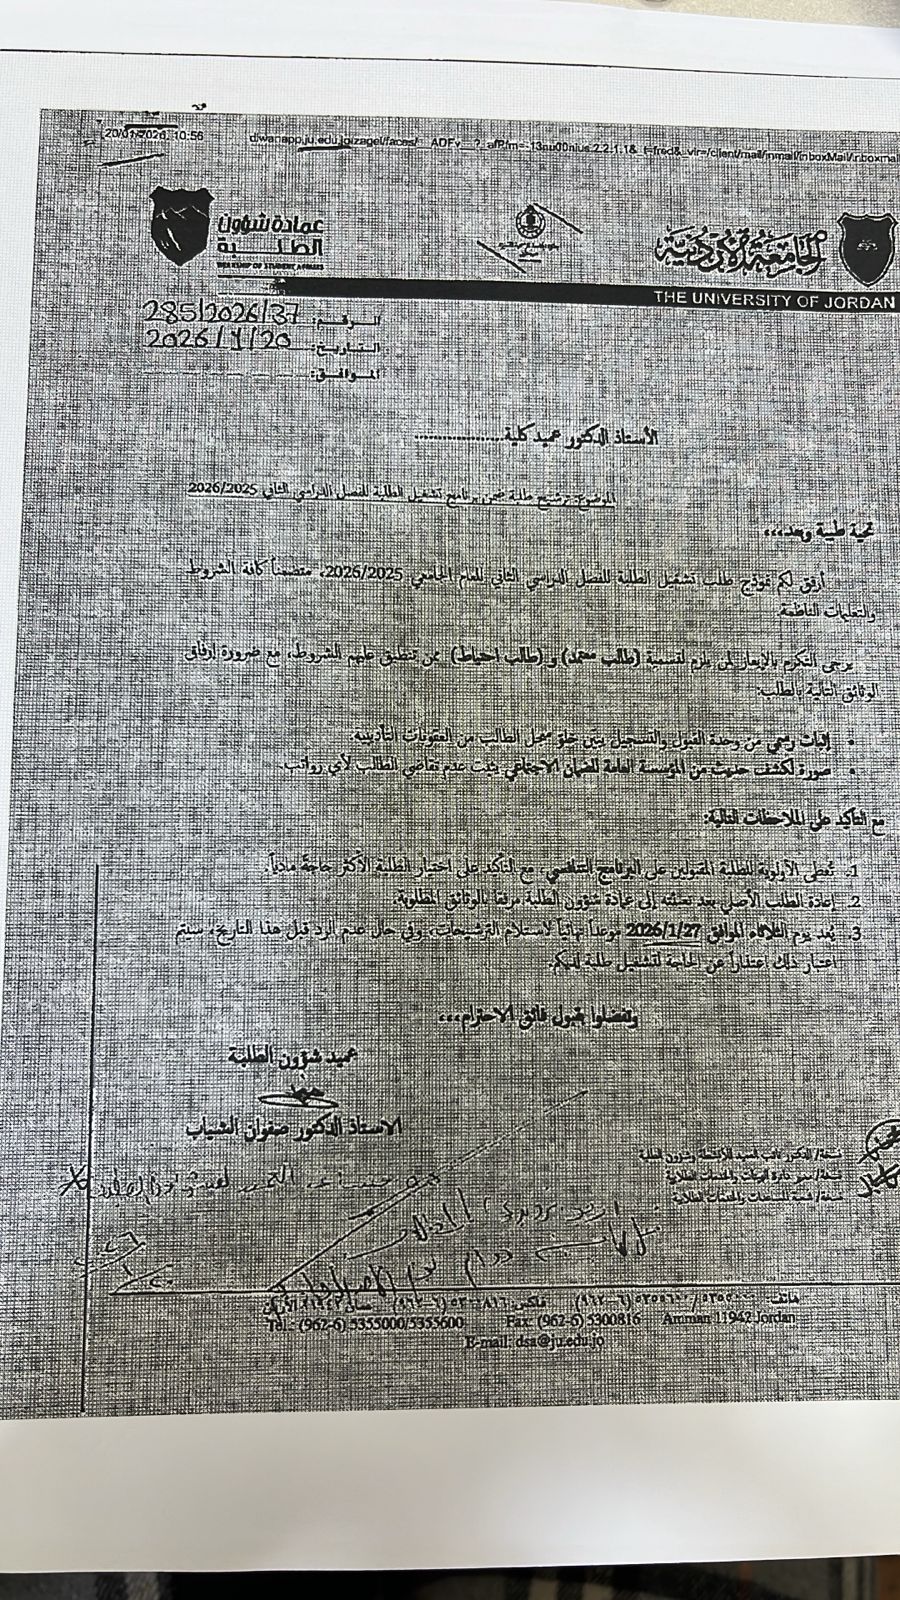 20/01/2026, 10:56
عمادة شؤون
الطلبة
الجامعة الأردنية
THE UNIVERSITY OF JORDAN
الرقم: 285/2026/37
التاريخ: 2026/1/20
الموافق:
الأستاذ الدكتور عميد كلية....................
الموضوع: ترشيح طلبة ضمن برنامج تشغيل الطلبة للفصل الدراسي الثاني 2026/2025
تحية طيبة وبعد،،،
أرفق لكم نموذج طلب تشغيل الطلبة للفصل الدراسي الثاني للعام الجامعي 2026/2025، متضمناً كافة الشروط
والتعليمات الناظمة.
يرجى التكرم بالإيعاز لمن يلزم لتسمية (طالب معتمد) و(طالب احتياط) ممن تنطبق عليهم الشروط، مع ضرورة إرفاق
الوثائق التالية بالطلب:
• إثبات رسمي من وحدة القبول والتسجيل يبين خلو سجل الطالب من العقوبات التأديبية.
• صورة لكشف حديث من المؤسسة العامة للضمان الاجتماعي يثبت عدم تقاضي الطالب لأي رواتب.
مع التأكيد على الملاحظات التالية:
1. تُعطى الأولوية للطلبة المقبولين على البرنامج التنافسي، مع التأكيد على اختيار الطلبة الأكثر حاجة مادياً.
2. إعادة الطلب الأصلي بعد تعبئته إلى عمادة شؤون الطلبة مرفقاً بالوثائق المطلوبة.
3. يُعد يوم الثلاثاء الموافق 2026/1/27 موعداً نهائياً لاستلام الترشيحات، وفي حال عدم الرد قبل هذا التاريخ، سيتم
اعتبار ذلك اعتذاراً عن الحاجة لتشغيل طلبة لديكم.
وتفضلوا بقبول فائق الاحترام،،،
عميد شؤون الطلبة
الاستاذ الدكتور صفوان الشياب
نسخة/ الدكتور نائب العميد للأنشطة وشؤون الطلبة
نسخة/ مدير دائرة الهيئات والخدمات الطلابية
Tel.: (962-6) 5355000/5355600 Fax: (962-6) 5300816 Amman 11942 Jordan
E-mail: dsa@ju.edu.jo